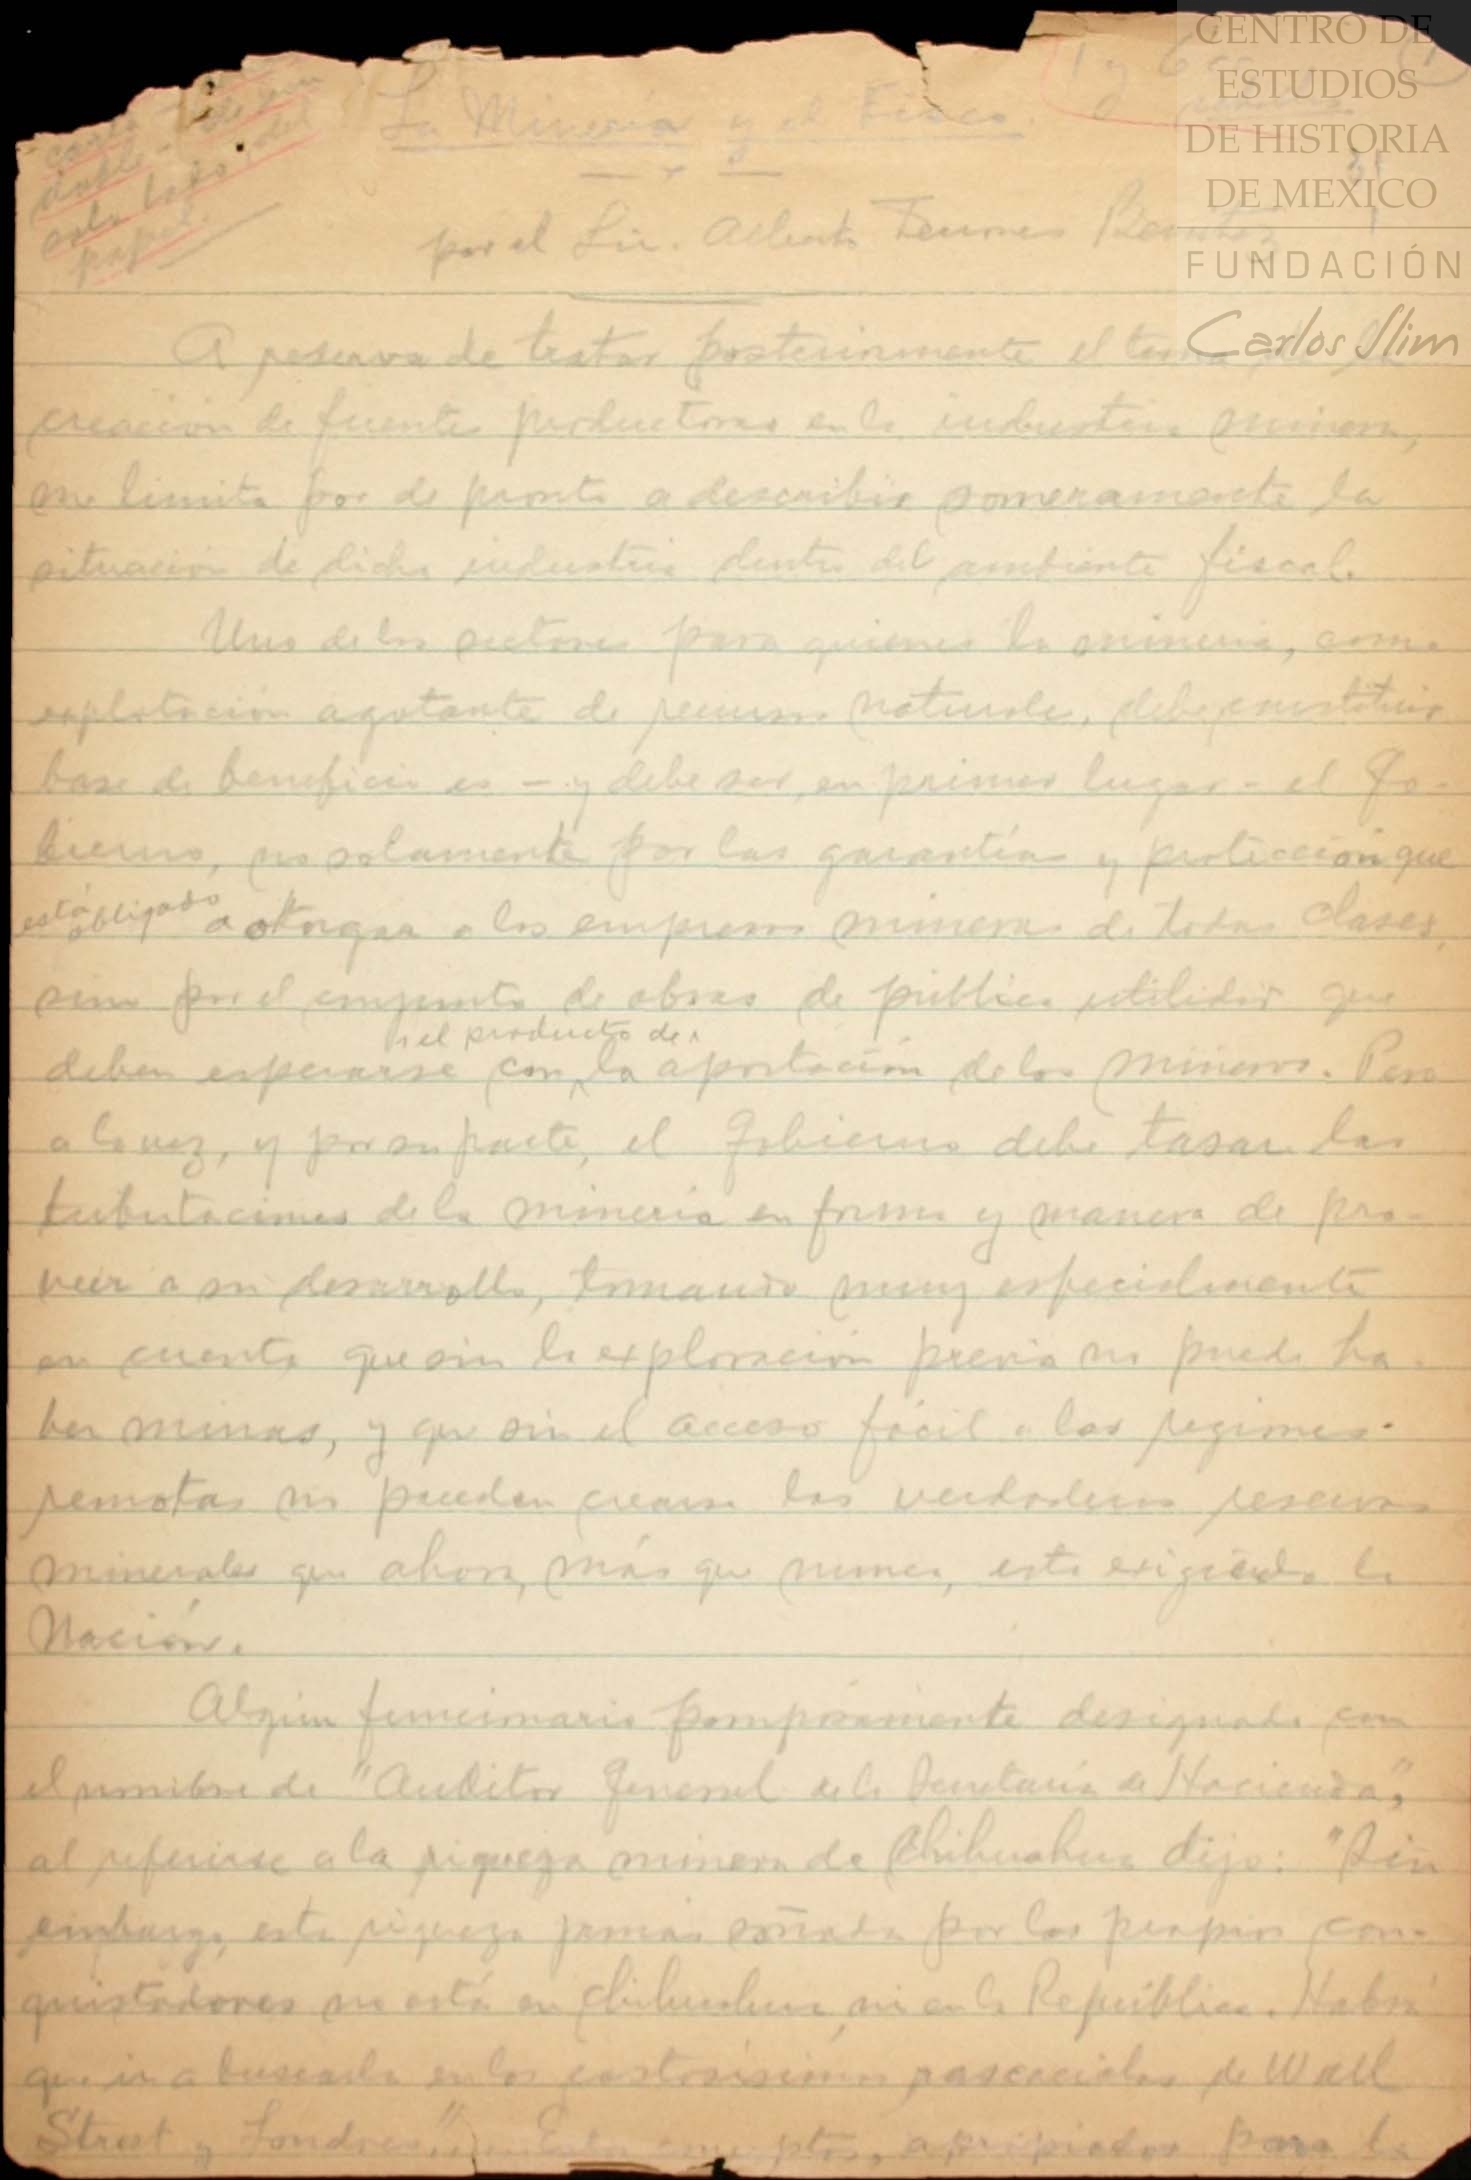 1 y 6
CENTRO DE
ESTUDIOS
DE HISTORIA
DE MEXICO
FUNDACIÓN
Carlos Slim
doble
solo lado del
papel.
La Minería y el Fisco.
por el Lic. Alberto Terrones Benítez
A reserva de tratar posteriormente el tema de la
creación de fuentes productoras en la industria minera,
me limito por de pronto a describir someramente la
situación de dicha industria dentro del ambiente fiscal.
Uno de los sectores para quienes la minería, como
explotación agotante de recursos naturales, debe constituir
base de beneficio es - y debe ser, en primer lugar - el Go-
bierno, no solamente por las garantías y protección que
está obligado a otorgar a las empresas mineras de todas clases,
sino por el conjunto de obras de pública utilidad que
deben esperarse con el producto de la aportación de los mineros. Pero
a la vez, y por su parte, el Gobierno debe tasar las
tributaciones de la minería en forma y manera de pro-
veer a su desarrollo, tomando muy especialmente
en cuenta que sin la exploración previa no puede ha-
ber minas, y que sin el acceso fácil a las regiones
remotas no pueden crearse las verdaderas reservas
minerales que ahora, más que nunca, está exigiendo la
Nación.
Algún funcionario pomposamente designado con
el nombre de "Auditor General de la Secretaría de Hacienda",
al referirse a la riqueza minera de Chihuahua dijo: "Sin
embargo, esta riqueza jamás soñada por los propios con-
quistadores no está en Chihuahua, ni en la República. Habrá
que ir a buscarla en los costosísimos rascacielos de Wall
Street y Londres". Estos conceptos, apropiados para la